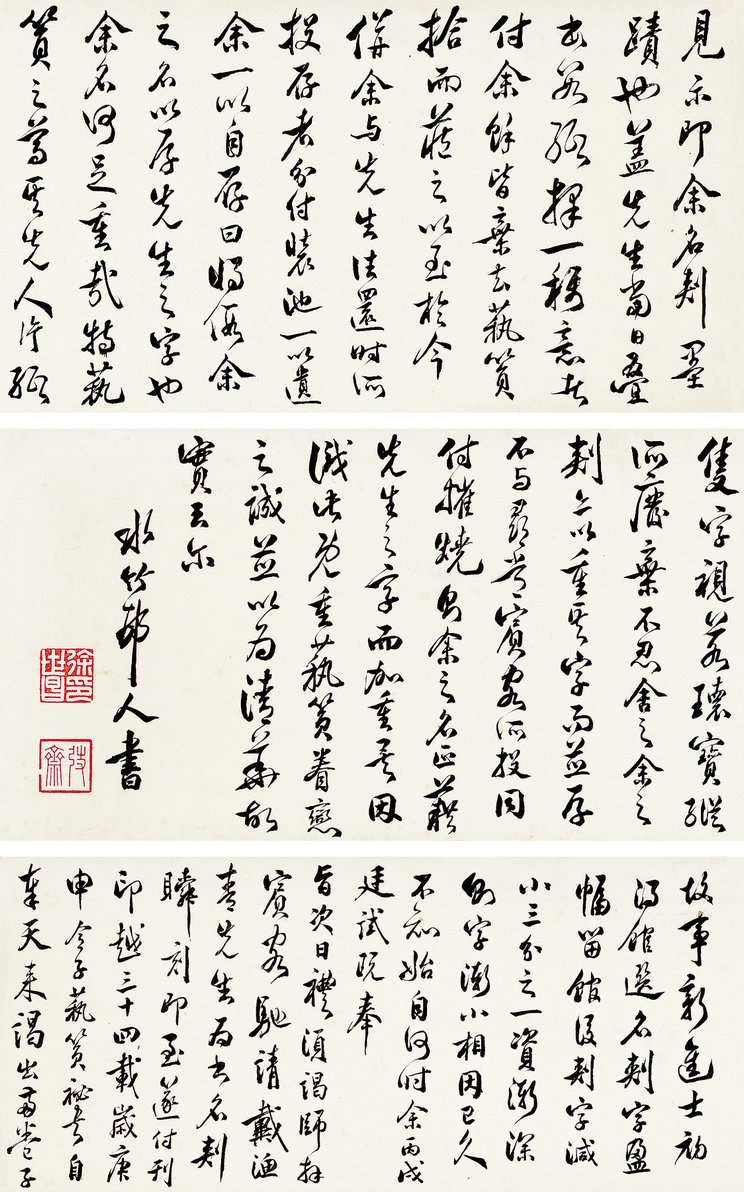 見示即余名刺墨
蹟也蓋先生當日疊
書數紙擇一稱意者
付余餘皆棄去藝簣
拾而藏之以至於今
併余与先生往還時所
投存者分付裝池一以遺
余一以自存曰將假余
之名以存先生之字也
余名何足重哉特藝
簣之篤其先人片紙
隻字視若瓌寶縱
所廢棄不忍舍之余之
刺亦以重其字而並存
不与尋常賓客所投同
付摧燒則余之名正藉
先生之字而加重矣因
識此以重藝簣眷戀
之誠並以為清華故
實云尔
水竹邨人書
徐世昌印
弢齋
故事新進士初
得館選名刺字盈
幅留館後刺字減
小三分之一資漸深
則字漸小相因已久
不知始自何時余丙戌
廷試既奉
旨次日禮須謁師拜
賓客馳請戴漁
青先生為書名刺
瞬刻即至遂付刊
印越三十四載歲庚
申令子藝簣祕書自
奉天來謁出兩卷子